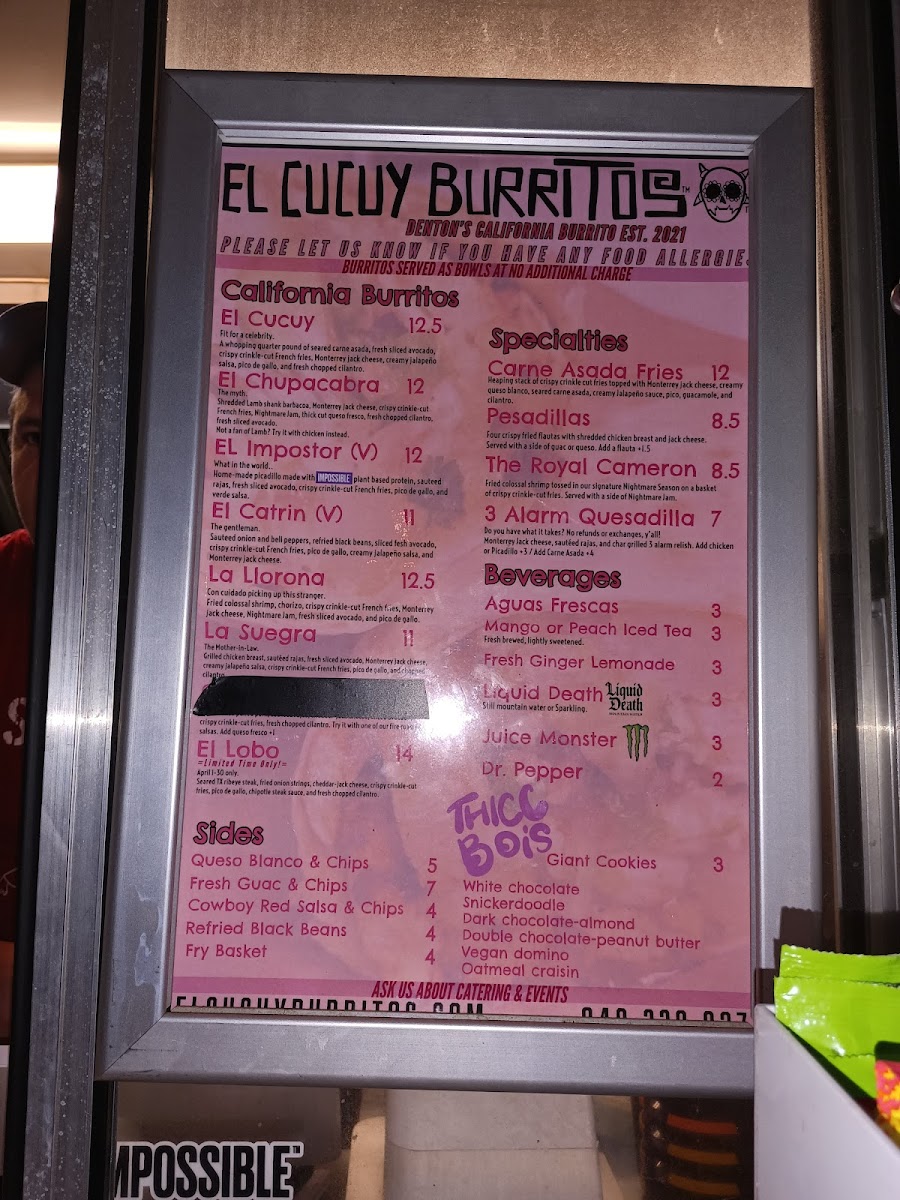 EL CUCUY BURRITOS™
DENTON'S CALIFORNIA BURRITO EST. 2021
PLEASE LET US KNOW IF YOU HAVE ANY FOOD ALLERGIES
BURRITOS SERVED AS BOWLS AT NO ADDITIONAL CHARGE
California Burritos
El Cucuy 12.5
Fit for a celebrity.
A whopping quarter pound of seared carne asada, fresh sliced avocado,
crispy crinkle-cut French fries, Monterrey jack cheese, creamy jalapeño
salsa, pico de gallo, and fresh chopped cilantro.
El Chupacabra 12
The myth.
Shredded Lamb shank barbacoa, Monterrey jack cheese, crispy crinkle-cut
French fries, Nightmare Jam, thick cut queso fresco, fresh chopped cilantro,
fresh sliced avocado.
Not a fan of Lamb? Try it with chicken instead.
EL Impostor (V) 12
What in the world..
Home-made picadillo made with IMPOSSIBLE plant based protein, sauteed
rajas, fresh sliced avocado, crispy crinkle-cut French fries, pico de gallo, and
verde salsa.
El Catrin (V) 11
The gentleman.
Sauteed onion and bell peppers, refried black beans, sliced fesh avocado,
crispy crinkle-cut French fries, pico de gallo, creamy jalapeño salsa, and
Monterrey jack cheese.
La Llorona 12.5
Con cuidado picking up this stranger.
Fried colossal shrimp, chorizo, crispy crinkle-cut French fries, Monterrey
jack cheese, Nightmare Jam, fresh sliced avocado, and pico de gallo.
La Suegra 11
The Mother-in-Law.
Grilled chicken breast, sautéed rajas, fresh sliced avocado, Monterrey jack cheese,
creamy jalapeño salsa, crispy crinkle-cut French fries, pico de gallo, and chopped
cilantro.
crispy crinkle-cut fries, fresh chopped cilantro. Try it with one of our fire-roasted
salsas. Add queso fresco +1
El Lobo 14
=Limited Time Only!=
April 1-30 only.
Seared TX ribeye steak, fried onion strings, cheddar-jack cheese, crispy crinkle-cut
fries, pico de gallo, chipotle steak sauce, and fresh chopped cilantro.
Sides
Queso Blanco & Chips 5
Fresh Guac & Chips 7
Cowboy Red Salsa & Chips 4
Refried Black Beans 4
Fry Basket 4
Specialties
Carne Asada Fries 12
Heaping stack of crispy crinkle cut fries topped with Monterey jack cheese, creamy
queso blanco, seared carne asada, creamy Jalapeño sauce, pico, guacamole, and
cilantro.
Pesadillas 8.5
Four crispy fried flautas with shredded chicken breast and jack cheese.
Served with a side of guac or queso. Add a flauta +1.5
The Royal Cameron 8.5
Fried colossal shrimp tossed in our signature Nightmare Season on a basket
of crispy crinkle-cut fries. Served with a side of Nightmare Jam.
3 Alarm Quesadilla 7
Do you have what it takes? No refunds or exchanges, y'all!
Monterrey jack cheese, sautéed rajas, and char grilled 3 alarm relish. Add chicken
or Picadillo +3 / Add Carne Asada +4
Beverages
Aguas Frescas 3
Mango or Peach Iced Tea 3
Fresh brewed, lightly sweetened.
Fresh Ginger Lemonade 3
Liquid Death Liquid Death 3
Still mountain water or Sparkling.
Juice Monster 3
Dr. Pepper 2
THICC
BOIS
Giant Cookies 3
White chocolate
Snickerdoodle
Dark chocolate-almond
Double chocolate-peanut butter
Vegan domino
Oatmeal craisin
ASK US ABOUT CATERING & EVENTS
ELCUCUYBURRITOS.COM
MPOSSIBLE™